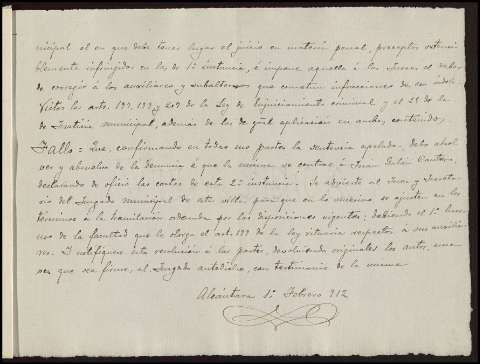 nicipal el en que debe tener lugar el juicio en materia penal, preceptos ostensi
blemente infringidos en los de 1ª instancia, é impone aquella á los Jueces el deber
de corregir á los auxiliares y subalternos que cometan infracciones de esa índole
Vistos los arts. 197, 198 y 207 de la Ley de Enjuiciamiento criminal y el 25 de la
de Justicia municipal, además de los de gral aplicación en ambos contenidos,
Fallo = Que, confirmando en todas sus partes la sentencia apelada, debo absol
ver y absuelvo de la denuncia á que la misma se contrae á Juan Julián
declarando de oficio las costas de esta 2ª instancia. Se advierte al Juez y Secreta
rio del Juzgado municipal de esta villa para que en lo sucesivo se ajusten en los
términos á la tramitación ordenada por las disposiciones vigentes, debiendo el 1º hacer
uso de la facultad que le otorga el art. 199 de la ley rituaria respecto á sus auxilia
res. I notifíquese esta resolución á las partes, devolviendo originales los autos, una
vez que sea firme, al Juzgado con testimonio de la misma
Alcántara 1º Febrero 912